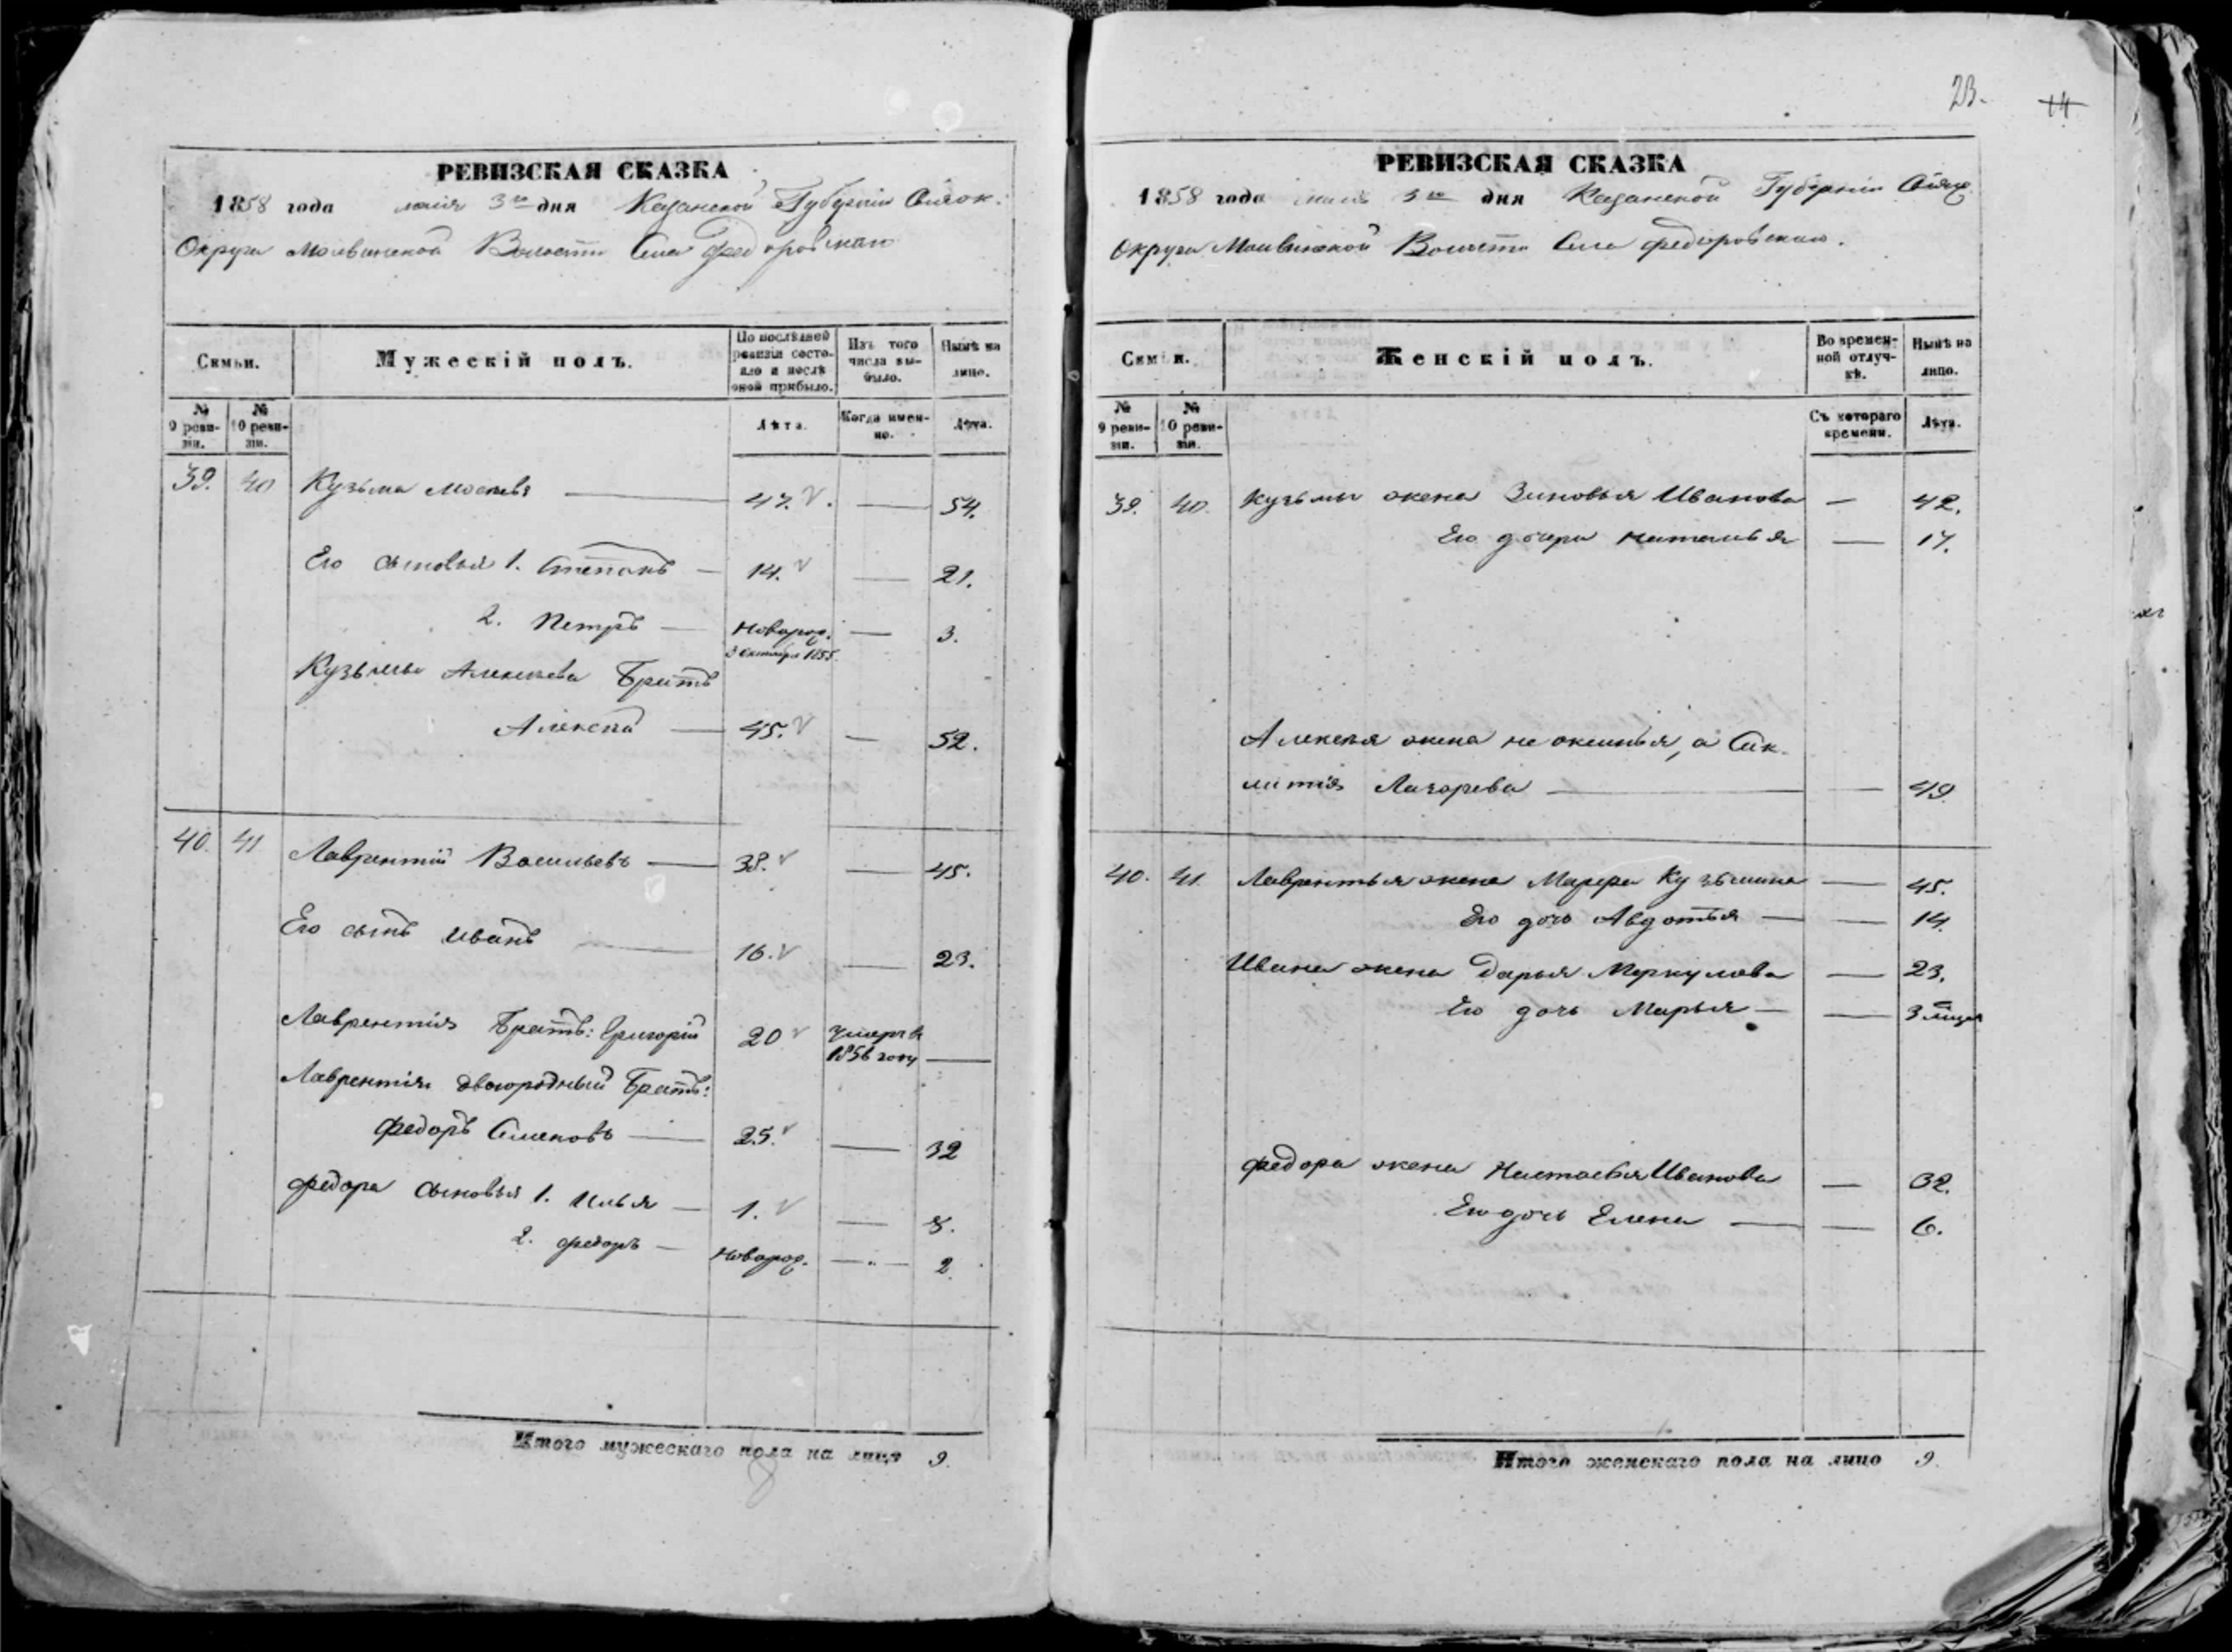 РЕВИЗСКАЯ СКАЗКА
1858 года маія 3го дня Казанской Губерніи Свіяж.
Округа Молвинской Волости Села Федоровскаго
Семьи.
Мужескій полъ.
По послѣдней ревизіи состояло и послѣ оной прибыло.
Изъ того числа выбыло.
Нынѣ на лицо.
№ 9 ревизіи.
№ 10 ревизіи.
Лѣта.
Когда именно.
Лѣта.
39. 40 Кузьма — 47. — 54.
Его сыновья 1. Степанъ — 14. — 21.
2. Петръ — Новорож. — 3.
3 Октября 1855.
Кузьмы Алексѣева Братъ
Алексѣй — 45. — 52.
40. 41 Лаврентій Васильевъ — 38. — 45.
Его сынъ Иванъ — 16. — 23.
Лаврентія Братъ: Григорій 20 Умеръ въ —
1856 году
Лаврентія двоюродный Братъ:
Федоръ Семеновъ — 25. — 32
Федора сыновья 1. Илья — 1. — 8.
2. Федоръ — Новорож. — 2.
Итого мужескаго пола на лицо 9.
23.
14
РЕВИЗСКАЯ СКАЗКА
1858 года маія 3го дня Казанской Губерніи Свіяж.
Округа Молвинской Волости Села Федоровскаго.
Семьи.
Женскій полъ.
Во временной отлучкѣ.
Нынѣ на лицо.
№ 9 ревизіи.
№ 10 ревизіи.
Съ котораго времени.
Лѣта.
39. 40. Кузьмы жена Зиновья Иванова — 42.
Его дочери Наталья — 17.
Алексѣя жена не Аксинья, а
Лазарева — 49
40. 41. Лаврентья жена Марфа Кузьмина — 45.
Его дочь Авдотья — 14.
Ивана жена Дарья Меркулова — 23.
Его дочь Марья — 3 мѣсяц
Федора жена Настасья Иванова — 32.
Его дочь Елена — 6.
Итого женскаго пола на лицо 9.